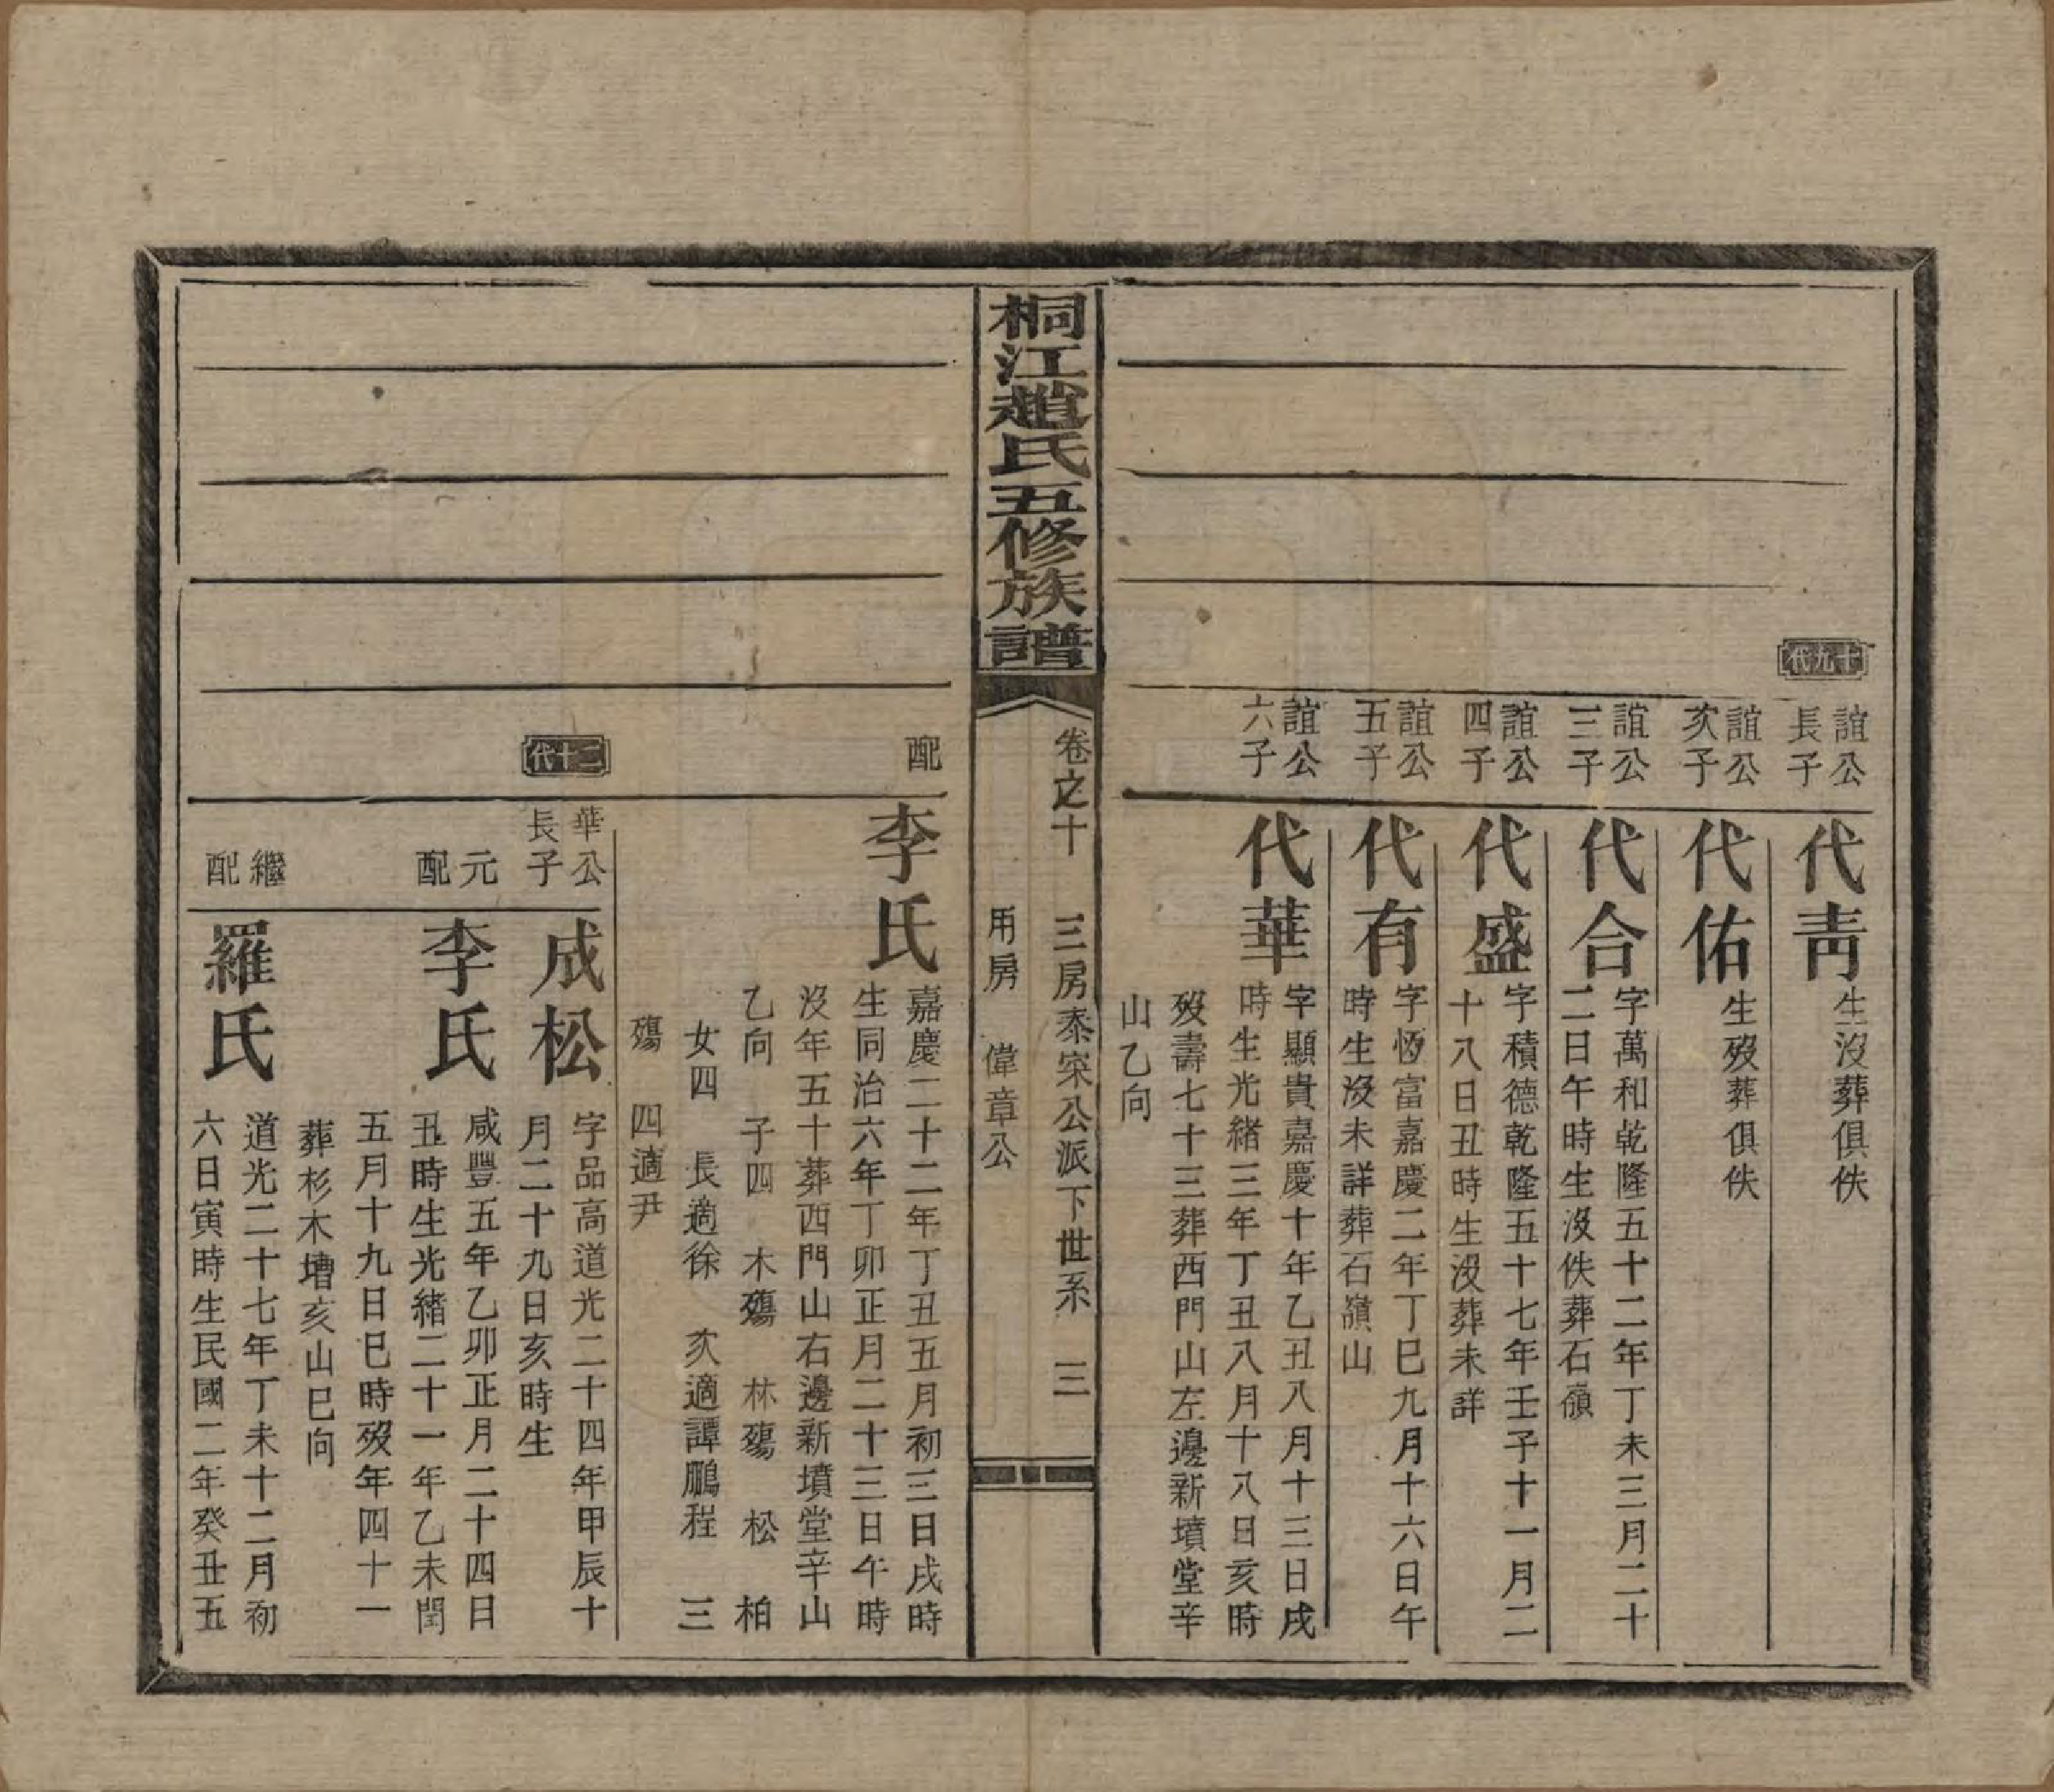 十九代
誼公
長子
代靑
生沒葬俱佚
誼公
次子
代佑
生歿葬俱佚
誼公
三子
代合
字萬和乾隆五十二年丁未三月二十
二日午時生沒佚葬石嶺
誼公
四子
代盛
字積德乾隆五十七年壬子十一月二
十八日丑時生沒葬未詳
誼公
五子
代有
字恆富嘉慶二年丁巳九月十六日午
時生沒未詳葬石嶺山
誼公
六子
代華
字顯貴嘉慶十年乙丑八月十三日戌
時生光緒三年丁丑八月十八日亥時
歿壽七十三葬西門山左邊新墳堂辛
山乙向
桐江趙氏五修族譜
卷之十 三房泰宋公派下世系 三
用房 偉章公
配
李氏
嘉慶二十二年丁丑五月初三日戌時
生同治六年丁卯正月二十三日午時
沒年五十葬西門山右邊新墳堂辛山
乙向 子四 木殤 林殤 松 柏
女四 長適徐 次適譚鵬程 三
殤 四適尹
二十代
華公
長子
成松
字品高道光二十四年甲辰十
月二十九日亥時生
元
配
李氏
咸豐五年乙卯正月二十四日
丑時生光緒二十一年乙未閏
五月十九日巳時歿年四十一
葬杉木塘亥山巳向
繼
配
羅氏
道光二十七年丁未十二月初
六日寅時生民國二年癸丑五